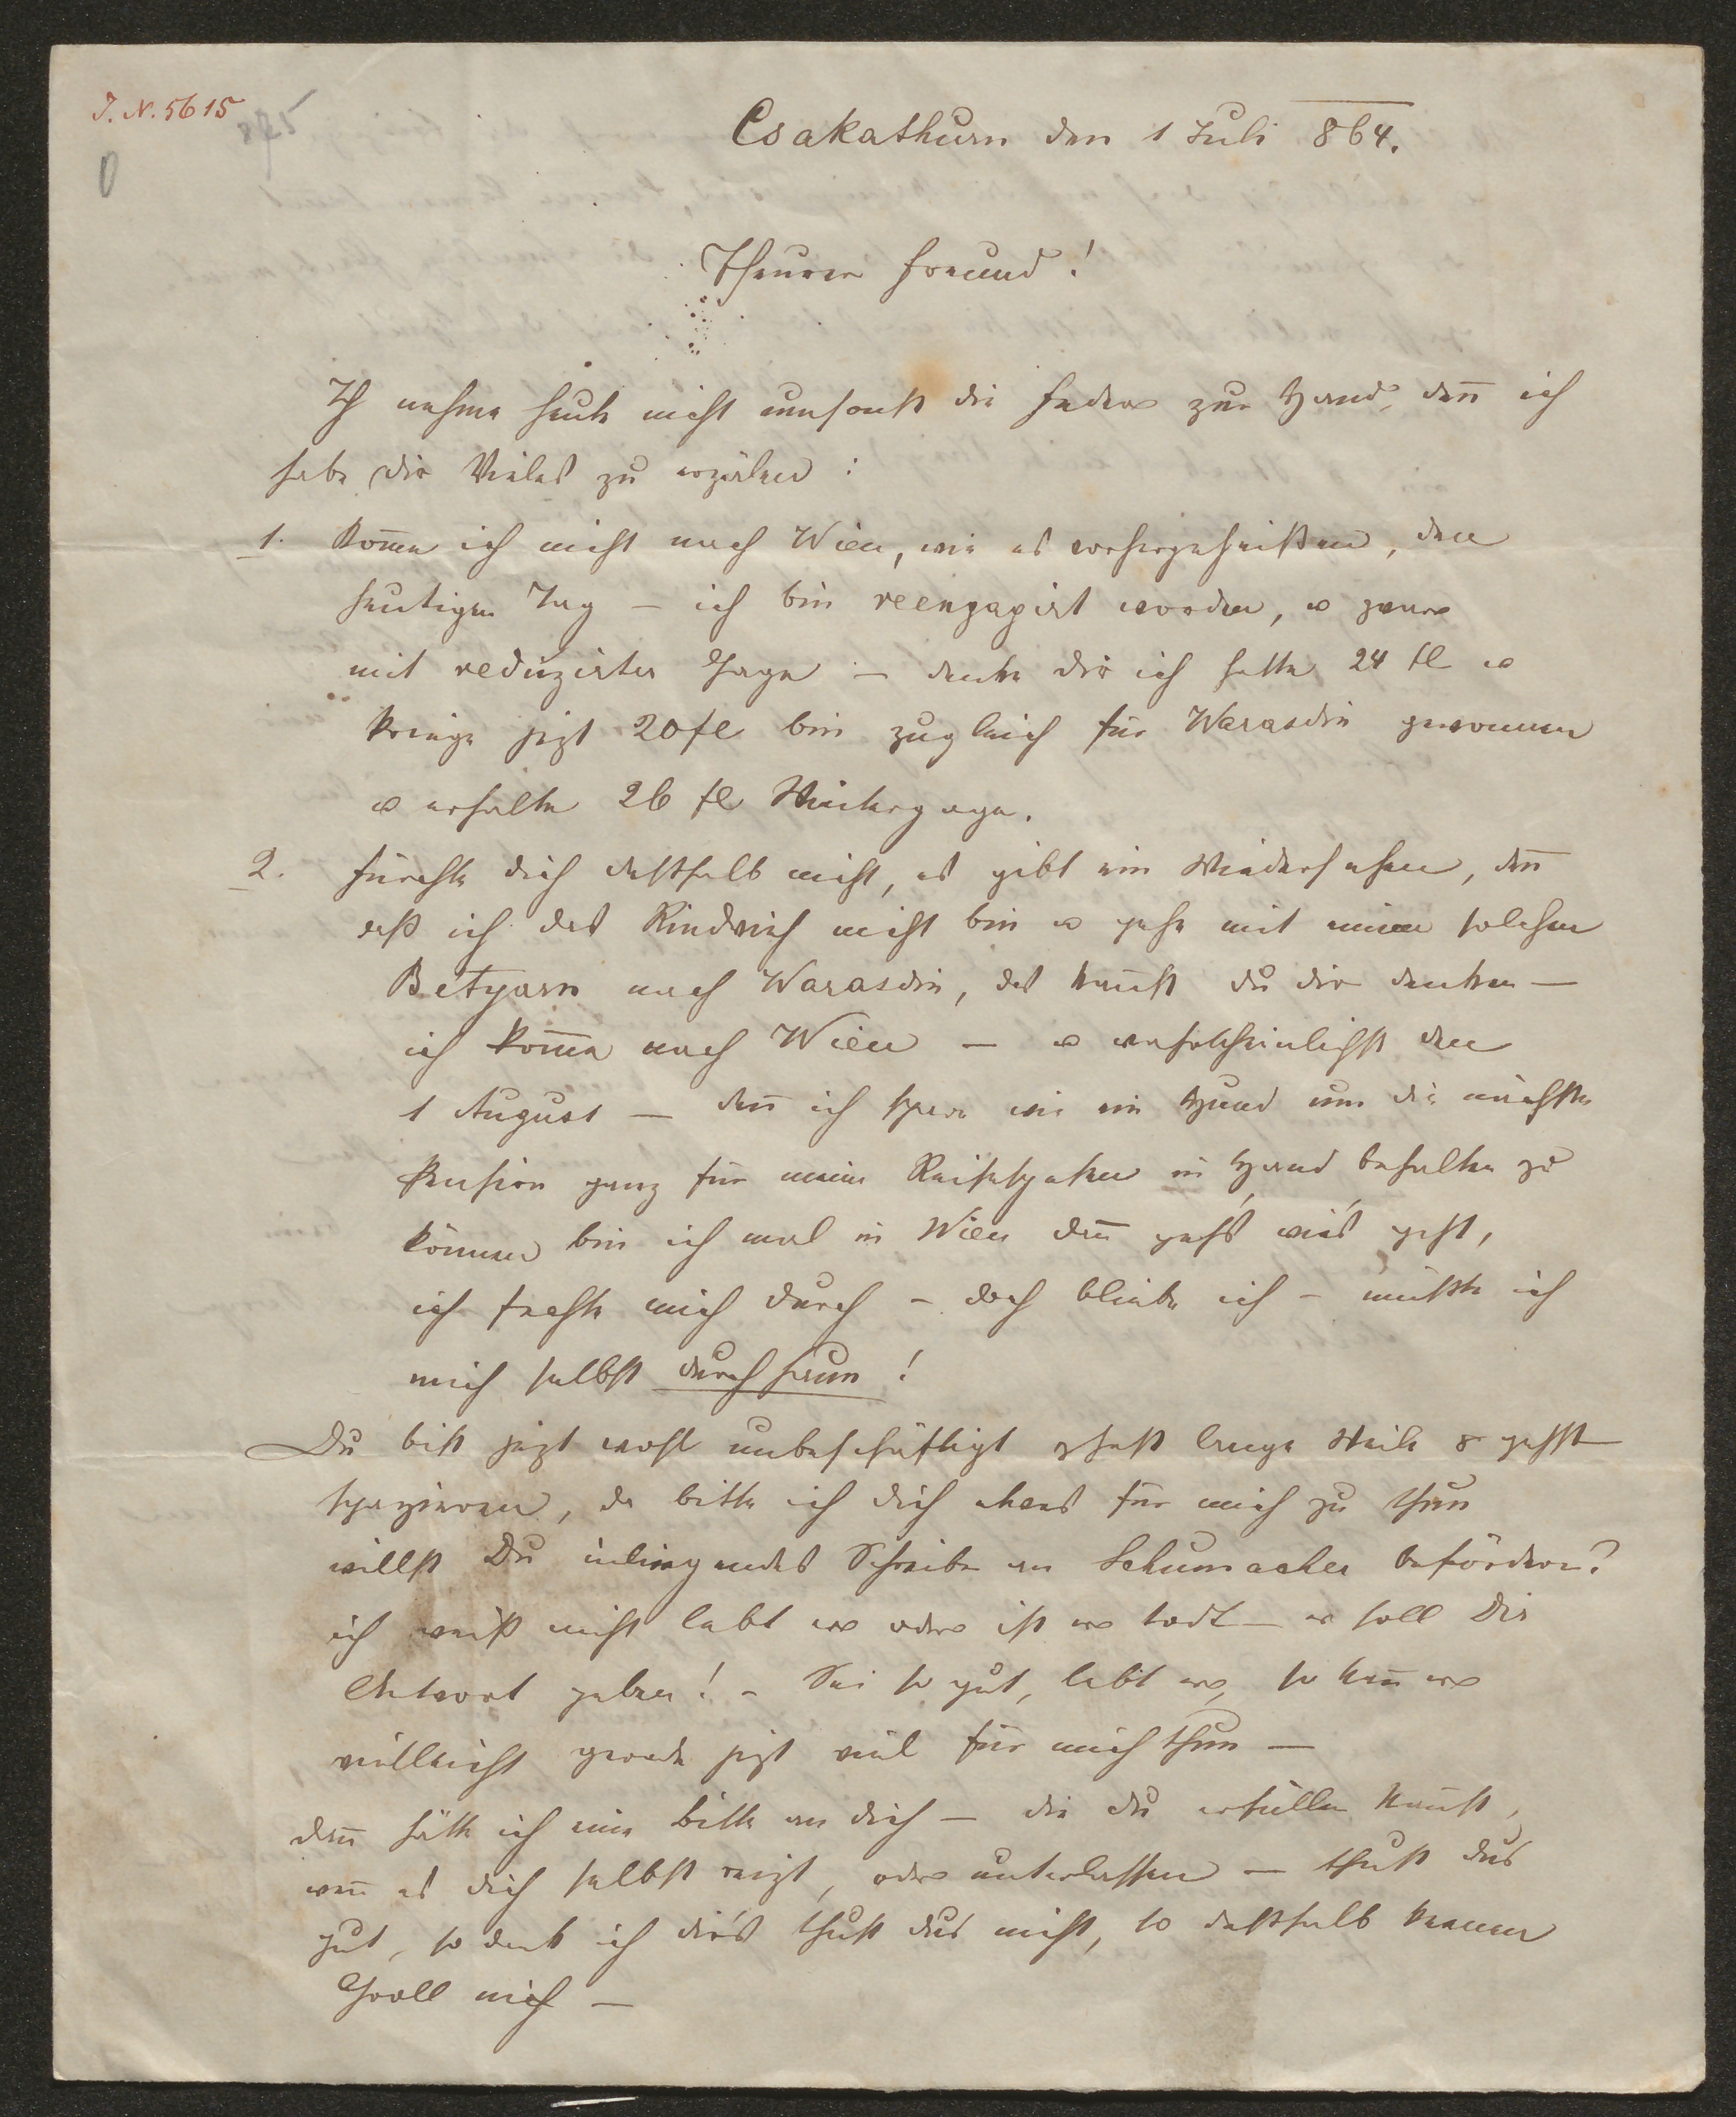 J. N. 5615
825
Csakathurn den 1 Juli 864.
Theurer Freund!
Ich nehme heute nicht umsonst die Feder zur Hand, den̄ ich
habe dir Vieles zu erzälen:
1. kom̄e ich nicht nach Wien, wie es vorhergeheißen, den
heutigen Tag – ich bin reengagirt worden, u zwar
mit reduzirter Gage – denke dir ich hatte 24 fl u
kriege jezt 20 fl bin zugleich für Warasdin genommen
u erhalte 26 fl Wintergage.
2. Fürchte dich deßhalb nicht, es gibt ein Wiedersehen, den̄
daß ich das Rindvieh nicht bin u gehe mit einem solchen
Betyarn nach Warasdin, das kan̄st du dir denken –
ich kom̄e nach Wien – u wahrscheinlichst den
1 August – den̄ ich spare wie ein Hund um die nächste
Pension ganz für meine Reisespesen in Hand behalten zu
können bin ich mal in Wien dan̄ gehs wie's geht,
ich fechte mich durch – doch bleibe ich – müßte ich
mich selbst durchhaun!
Du bist jezt wohl unbeschäftigt hast lange Weile & gehst
spazieren, da bitte ich dich etwas für mich zu thun
willst Du inliegendes Schreiben an Schumacher befördern?
ich weiß nicht lebt er oder ist er todt – er soll Dir
Antwort geben! – Sei so gut, lebt er, so kan̄ er
vielleicht gerade jezt viel für mich thun –
dan̄ hätte ich eine Bitte an dich – die du erfüllen kan̄st,
wen̄ es dich selbst reizt, oder unterlassen – thust du's
gut, so dank ich dir's thust du's nicht, so deßhalb keinen
Groll nicht –